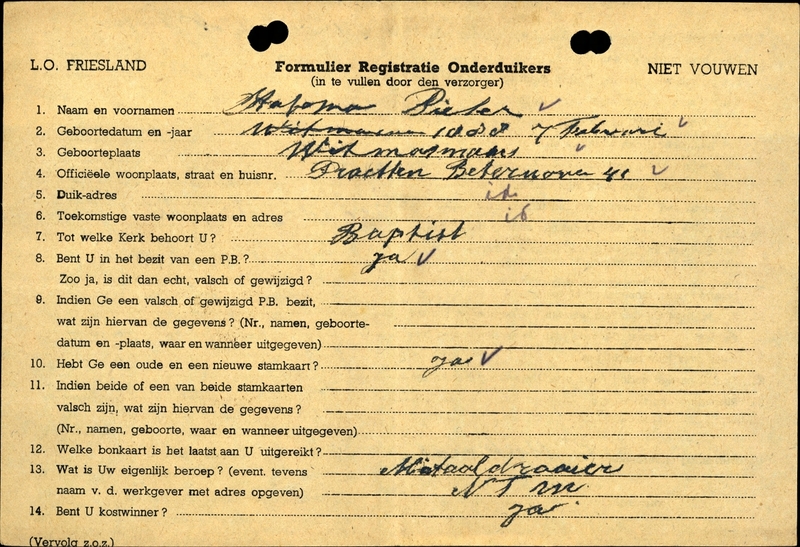 L.O. FRIESLAND Formulier Registratie Onderduikers NIET VOUWEN
(in te vullen door den verzorger)
1. Naam en voornamen Pieter
2. Geboortedatum en -jaar 1888 7 Februari
3. Geboorteplaats Witmarsum
4. Officiëele woonplaats, straat en huisnr. 41
5. Duik-adres id
6. Toekomstige vaste woonplaats en adres id
7. Tot welke Kerk behoort U? Baptist
8. Bent U in het bezit van een P.B.? ja
Zoo ja, is dit dan echt, valsch of gewijzigd?
9. Indien Ge een valsch of gewijzigd P.B. bezit,
wat zijn hiervan de gegevens? (Nr., namen, geboorte-
datum en -plaats, waar en wanneer uitgegeven)
10. Hebt Ge een oude en een nieuwe stamkaart? ja
11. Indien beide of een van beide stamkaarten
valsch zijn, wat zijn hiervan de gegevens?
(Nr., namen, geboorte, waar en wanneer uitgegeven)
12. Welke bonkaart is het laatst aan U uitgereikt?
13. Wat is Uw eigenlijk beroep? (event. tevens Metaaldraaier
naam v. d. werkgever met adres opgeven) N T M
14. Bent U kostwinner? ja
(Vervolg z.o.z.)